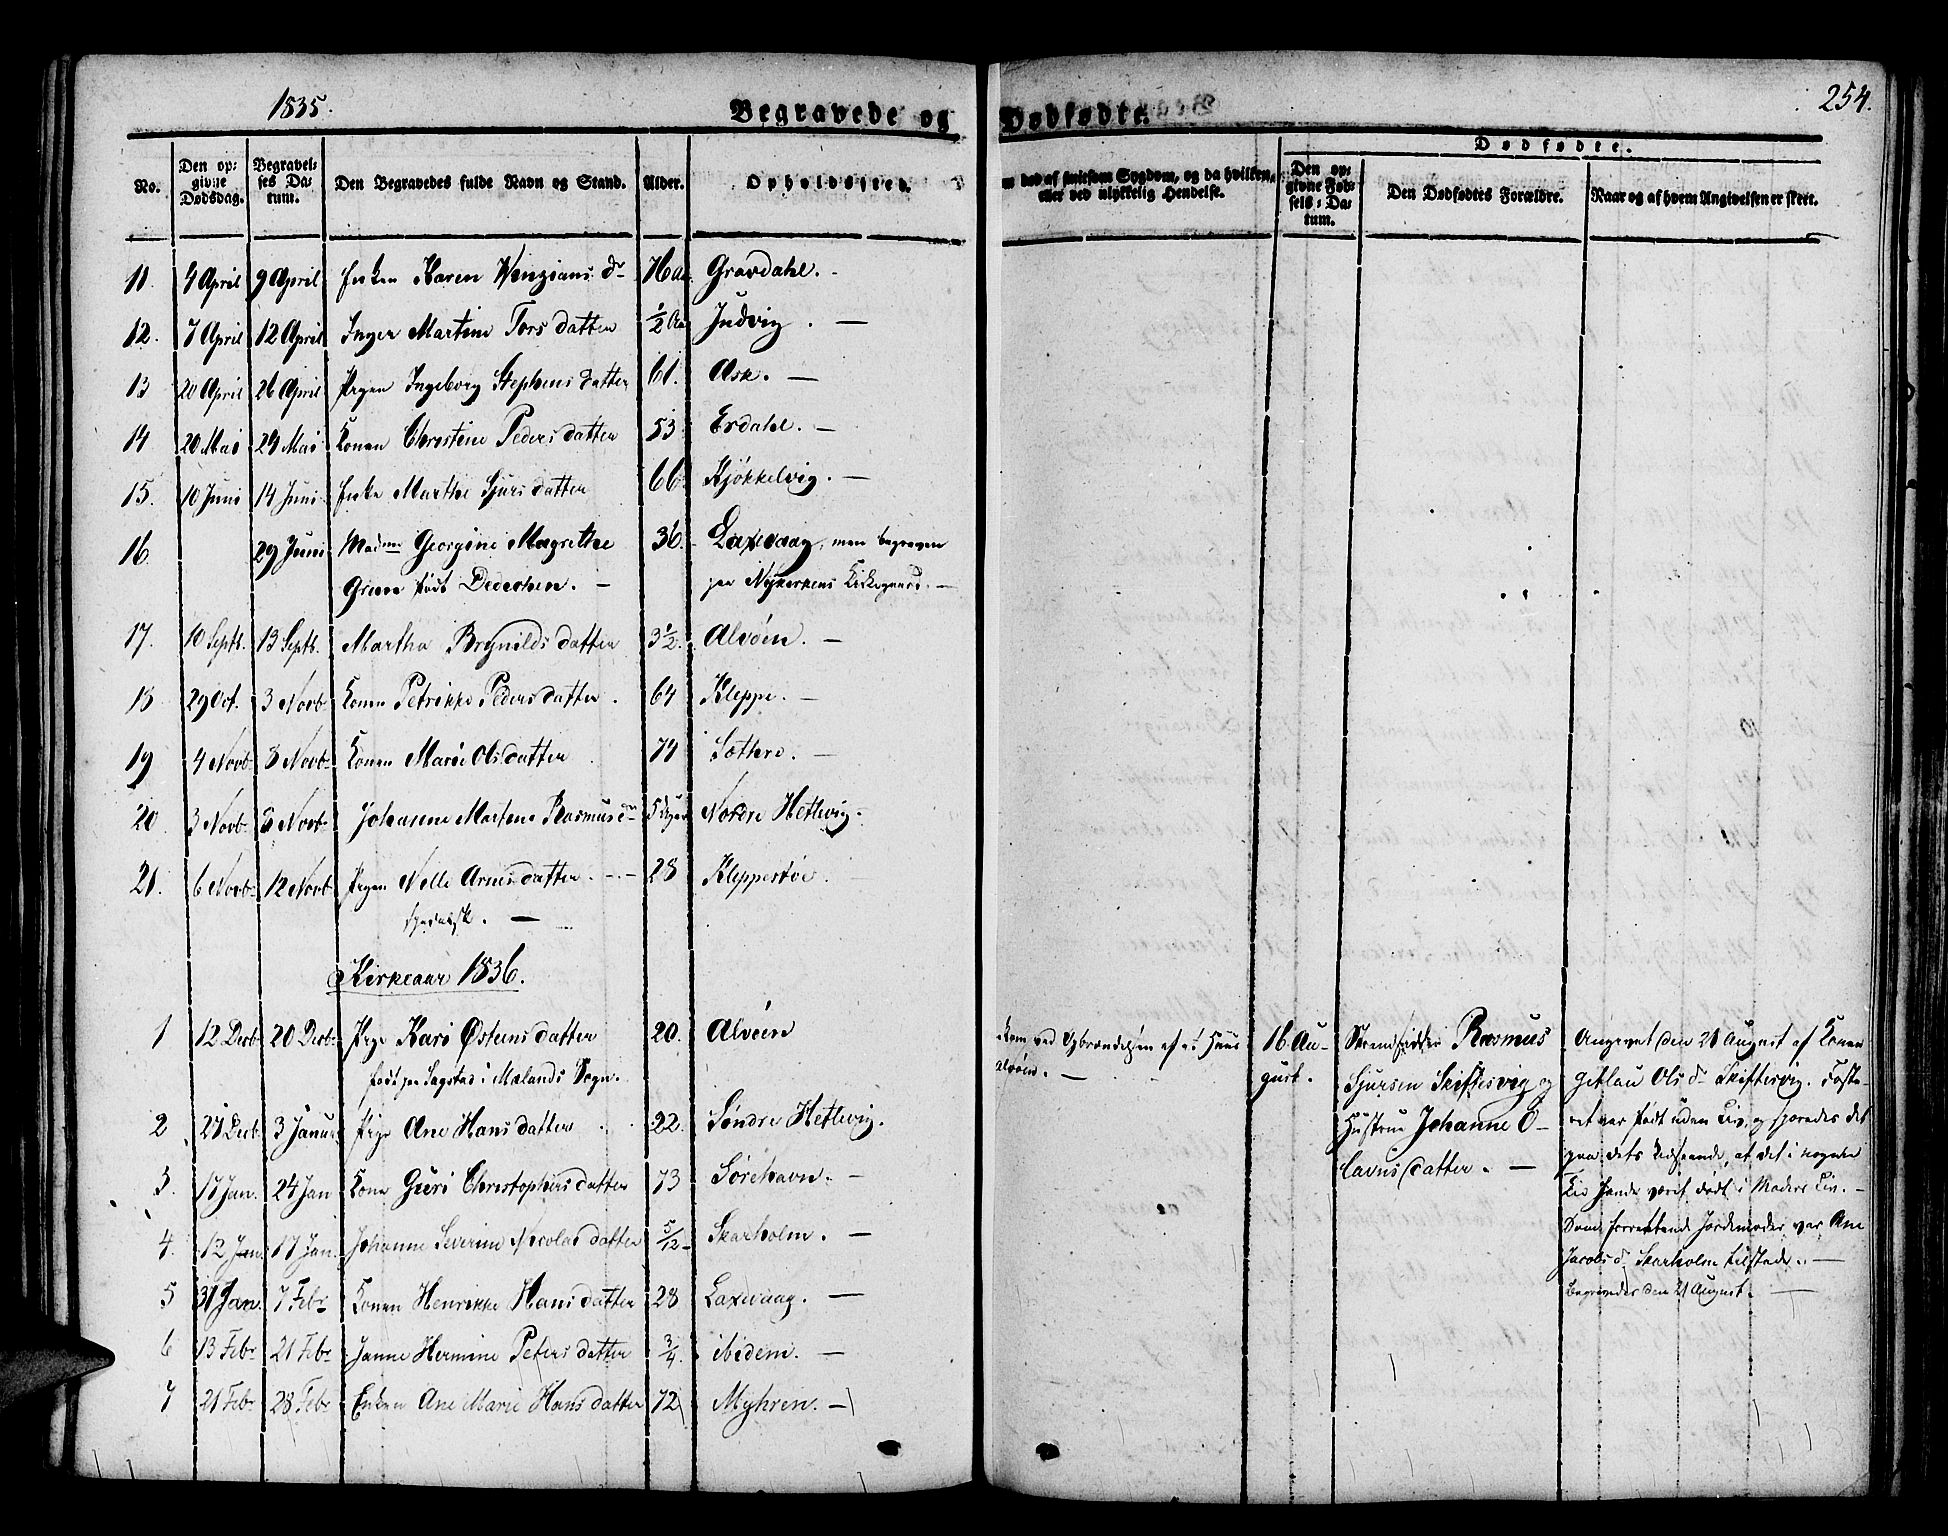 1835.
Begravede og Dødfødte.
254.
No.
Den opgivne Dødsdag.
Begravelses Datum.
Den Begravedes fulde Navn og Stand.
Alder.
Opholdssted.
død af smitsom Sygdom, og da hvilken, eller ved ulykkelig Hendelse.
Dødfødte.
Den opgivne Fødsels-Datum.
Den Dødfødtes Forældre.
Naar og af hvem Angivelsen er skeet.
11. 4 April 9 April Enken Karen Wingians dr 76 Gravdahl. -
12. 7 April 12 April Inger Martine Tors datter 1/2 Aar Judvig. -
13 20 April 26 April Pigen Ingeborg Stephens datter 61. Ask. -
14 20 Mai 24 Mai Konen Christine Peders datter 53 Erdahl. -
15. 10 Juni 14 Juni Enke Marthe Sjurs datter 66 Kjøkkelvig. -
16 29 Juni Madme Georgine Magrethe 36. Laxevaag, men begraven
Grun født Dedechen. - paa Nykirkens Kirkegaard. -
17. 10 Septb. 13 Septb. Martha Brynilds datter 3 1/2 Alvøen. -
18 29 Oct. 3 Novb Konen Petrikke Peders datter. 64 Kleppe. -
19 4 Novb 8 Novb Konen Marie Ols datter 74 Sættere. -
20 3 Novb 8 Novb Johanne Martine Rasmus dr 5 Uger Nordre Hetlevig.
21. 6 Novb 12 Novb Pigen Nelle Arnes datter. 28 Kleppestøe.
spedalsk. -
Kirkeaar 1836.
1 12 Decb 20 Decb Pige Kari Østens datter 20. Alvøen
født paa Sagstad i Mælands Sogn.
2 27 Decb 3 Januar Pige Ane Hans datter 22. Søndre Hetlevig.
3. 17 Jan. 24 Jan Kone Guri Christophers datter 73 Sørehavn. -
4. 12 Jan. 17 Jan. Johanne Severine Nicolai datter 5/12 Skarholm. -
5 31 Jan. 7 Febr Konen Henrikke Hans datter 28 Laxevaag. -
6 13 Febr 21 Febr Janne Hermine Peters datter 3/4. ibidem. -
7 21 Febr 28 Febr Enken Ane Marie Hans datter 72 Myhren. -
kom ved Opbrændelsen af et Huus
Alvøen. -
16 Au-
gust.
Strandsidder Rasmus
Sjursen Skiftesvig og
Hustrue Johanne O-
lavus datter. -
Angivet den 21 August af Konen
Gitlau Ols dr Skiftesvig. Foste-
ret var født uden Liv, og sporedes det
paa dets Udseende, at det i nogen
Tid havde været dødt i Moders Liv. -
Som forrettende Jordemoder var Ane
Jacobs dr Skarholm tilstede. -
Begravedes den 21 August. -